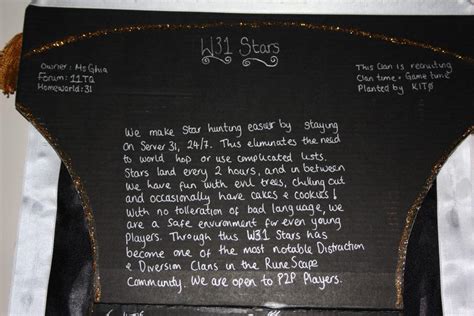 W31 Stars
Owner: Ms Ghia
Forum: 11TQ
Homeworld: 31
This Clan is recruiting
Clan time = Game time
Planted by K1TØ
We make Star hunting easier by staying
On Server 31, 24/7. This eliminates the need
to world hop or use complicated lists.
Stars land every 2 hours, and in between
We have fun with evil trees, chilling out
and occasionally have cakes & cookies!
With no tolleration of bad language, we
are a Safe environment for even young
Players. Through this W31 Stars has
become one of the most notable Distraction
& Diversion Clans in the RuneScape
Community. We are open to P2P Players.